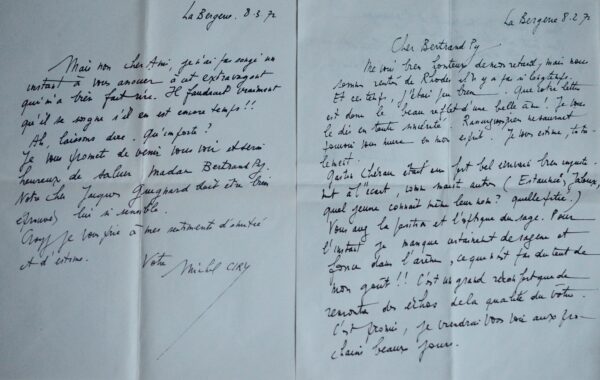 La Bergerie. 8.3.72
Mais non cher Ami, je n'ai pas songé un
instant à vous amener à cet extravagant
qui m'a très fait rire. Il faudrait vraiment
qu'il se soigne s'il en est encore temps!!
Ah, laissons dire. Qu'importe?
Je vous promets de venir vous voir et serai
heureux de saluer Madame Bertrand Py.
Notre cher Jacques Guignard doit être bien
éprouvé, lui si sensible.
Croyez je vous prie à mes sentiments d'amitié
et d'estime. Votre
Michel CIRY
La Bergerie 8.2.72
Cher Bertrand Py
Me voici bien honteux de mon retard, mais nous
sommes rentrés de Rhodes il n'y a pas si longtemps.
Et ce temps, j'étais
est donc le beau reflet d'une belle âme! Je vous
le dis en toute sincérité. ne sauraient
jamais vous nuire en mon esprit. Je vous estime, tota-
lement.
Gaston Chérau était un fort bel écrivain bien injuste-
ment à l'écart, comme maints autres (Estaunié, Jaloux,
quel jeune connaît même leur nom? quelle pitié.)
Vous avez la position et l'optique du sage. Pour
l'instant je manque certainement de sagesse et
fonce dans l'arène, ce qui n'est pas du tout de
mon goût!! C'est un grand réconfort que de
rencontrer des échos de la qualité du vôtre.
C'est promis, je viendrai vous voir aux pro-
chains beaux jours.